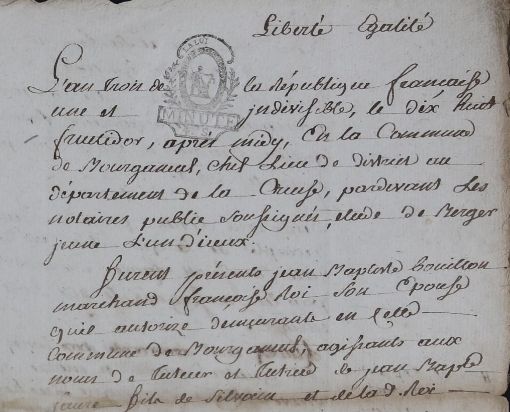 Liberté Egalité
LA LOI
L'an trois de la République française
une et indivisible, le dix huit
MINUTE
fructidor, après midy, En la Commune
de Bourganeuf, chef Lieu de district au
département de la Creuse, pardevant Les
notaires public soussignés, etude de Berger
jeune L'un d'iceux.
furent présents jean Baptiste Bouillon
marchand françoise Roi son Epouse
qu'il autorize demeurants en Celle
Commune de Bourganeuf, agissants aux
noms de tuteur et tutrice de jean Bapte
fils de Silvain et de la d. Roi